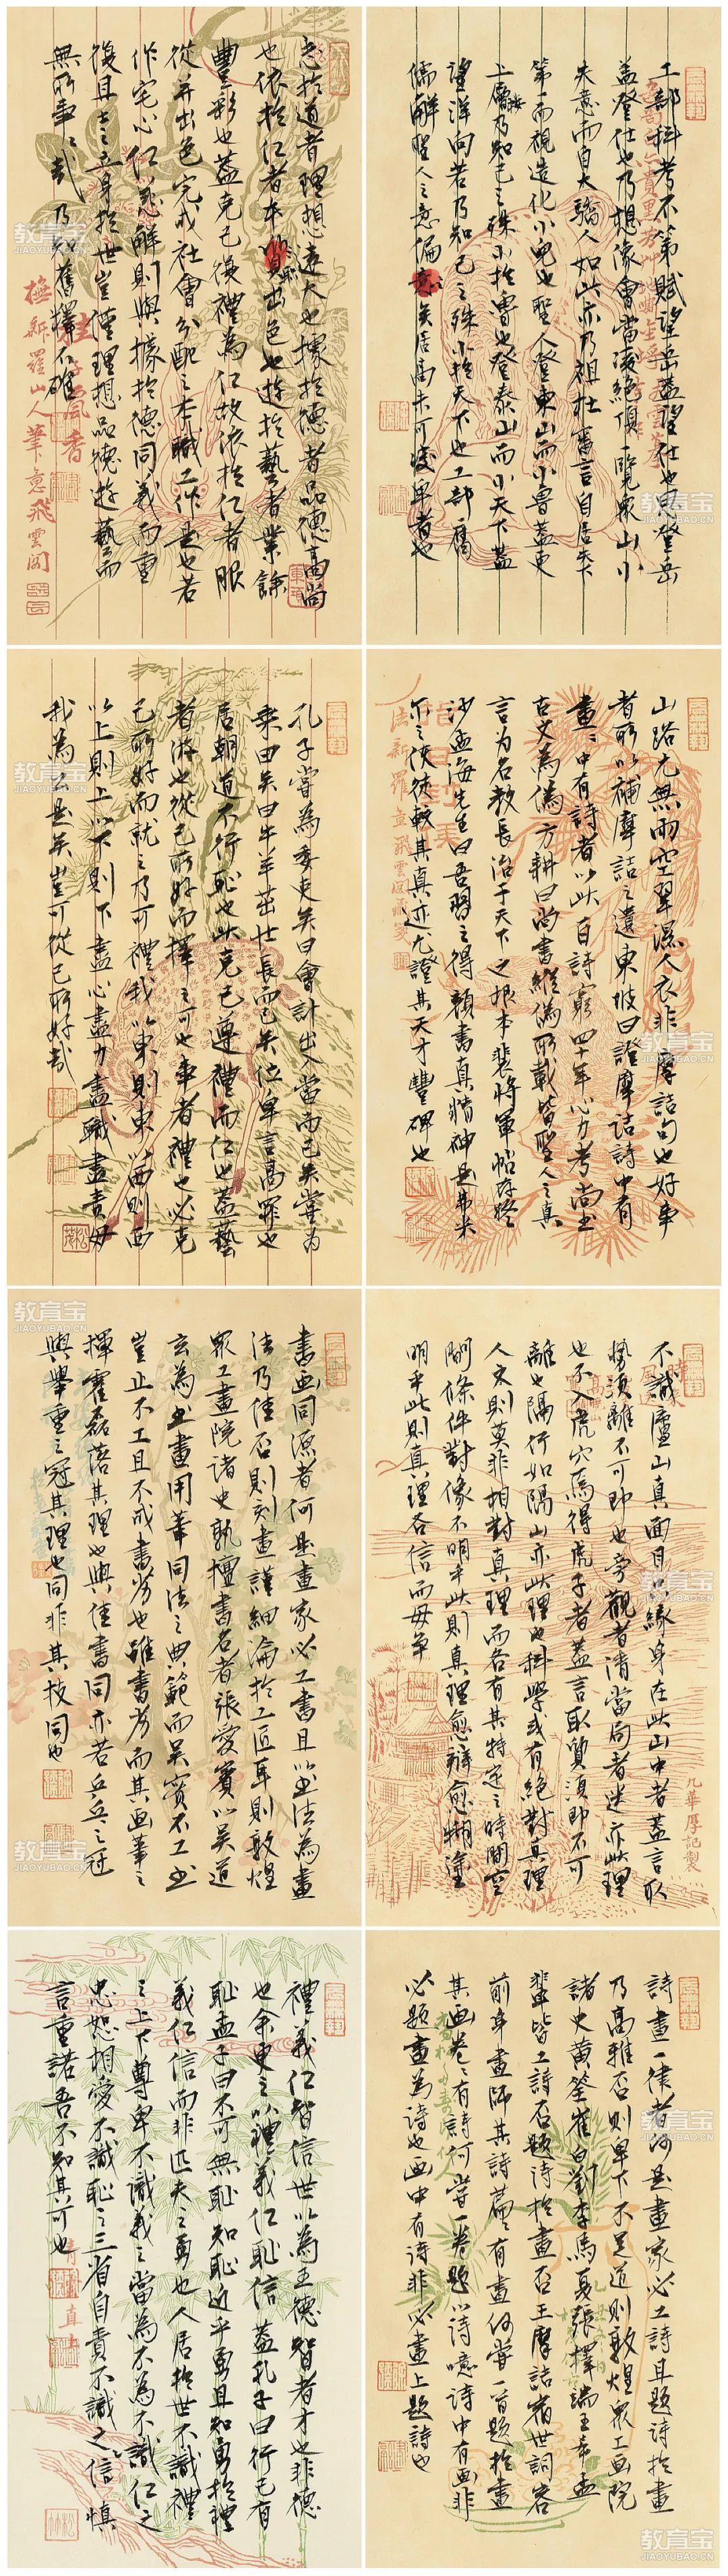 工部科考不第賦望岳蓋望仕也思登岳
蓋登仕也乃想像會當凌絕頂一覽衆山小
失意而自大驕人如此亦乃祖杜審言自居天下
第一而視造化小兒也聖人登東山而小魯蓋更
上層樓乃知己之殊小於魯也登泰山而小天下蓋
望洋向若乃知己之殊小於天下也工部腐
儒解聖人之意偏矣居高未可凌卑者也
志於道者理想遠大也據於德者品德高尚
也依於仁者本職出色也遊於藝者業餘
豐彩也蓋克己復禮為仁故依於仁者服
從并出色完成社會分配之本職工作是也若
作宅心仁慈解則與據於德同義而重
復且士之立身於世豈僅理想品德遊藝而
無所事事哉乃知舊釋不確
撫新羅山人筆意飛雲閣
山路元無雨空翠濕人衣非摩詰句也好事
者所以補摩詰之遺東坡曰證摩詰詩中有
畫畫中有詩者以此百詩窮四十年心力考尚書
古文為偽方耕曰尚書縱偽所載皆聖人之真
言為名教長治于天下之根本裴將軍帖存疑
沙孟海先生曰吾習之得顏書真精神是弗米
亦之使徒較其真迹尤證其天才豐碑也
孔子嘗為委吏矣曰會計出入當而已矣嘗為
乘田矣曰牛羊茁壯長而已矣位卑言高罪也
居朝道不行恥也此克己遵禮而仁也蓋藝
者游也從己所好而擇之可也事者禮也必克
己所好而就之乃可禮我以東則東以西則西
以上則上以下則下盡心盡力盡職盡責毋
我為之是矣豈可從己所好哉
不識廬山真面目只緣身在此山中者蓋言取
勢須離不可即也旁觀者清當局者迷亦此理
也不入虎穴焉得虎子者蓋言取質須即不可
離也隔行如隔山亦此理也科學或有絕對真理
人文則莫非相對真理而各有其特定之時間空
間條件對像不明乎此則真理愈辯愈糊塗
明乎此則真理各信而毋爭
九華厚記製
書畫同源者何是畫家必工書且以書法為畫
法乃佳否則刻畫謹細淪於工匠耳則敦煌
衆工畫院諸史孰擅書名者張愛賓以吳道
玄為書畫用筆同法之典範而吳實不工書
豈止不工且不成書劣也雖書劣而其畫筆之
揮霍磊落其理也與佳書同亦若乒乓之冠
與舉重之冠其理也同非其技同也
詩畫一律者何是畫家必工詩且題詩於畫
乃高雅否則卑下不足道則敦煌衆工畫院
諸史黃筌崔白劉李馬夏張擇端王希孟
輩皆工詩否題詩於畫否王摩詰宿世詞客
前身畫師其詩篇篇有畫何嘗一首題於畫
其畫卷卷有詩何嘗一卷題以詩噫詩中有畫非
必題畫為詩也畫中有詩非必畫上題詩也
禮義仁智信世以為五德智者才也非德
也余更之以禮義仁恥信蓋孔子曰行己有
恥孟子曰不可無恥知恥近乎勇且知勇於禮
義仁信而非匹夫之勇也人居於世不識禮
之上下尊卑不識義之當為不為不識仁之
忠恕相愛不識恥之三省自責不識之信慎
言重諾吾不知其可也
教育宝
JIAOYUBAO.CN